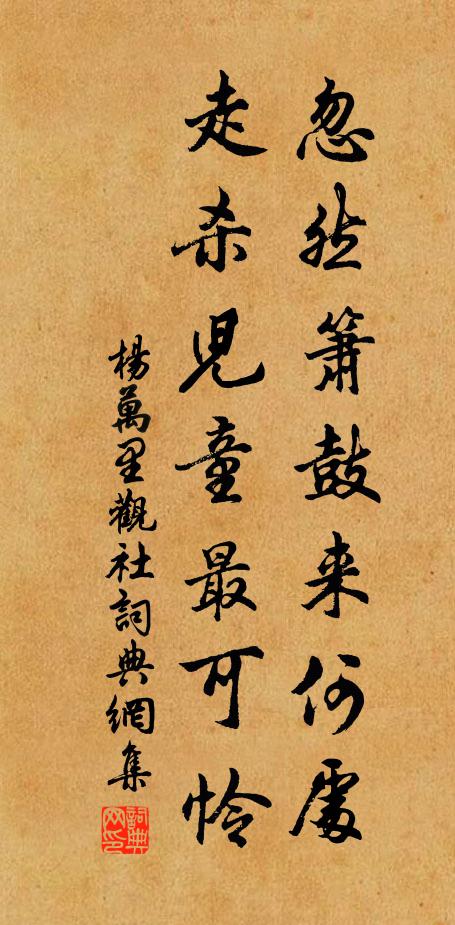 忽然簫鼓来何處
走杀兒童最可怜
楊萬里觀社詞典網集
詞典网印